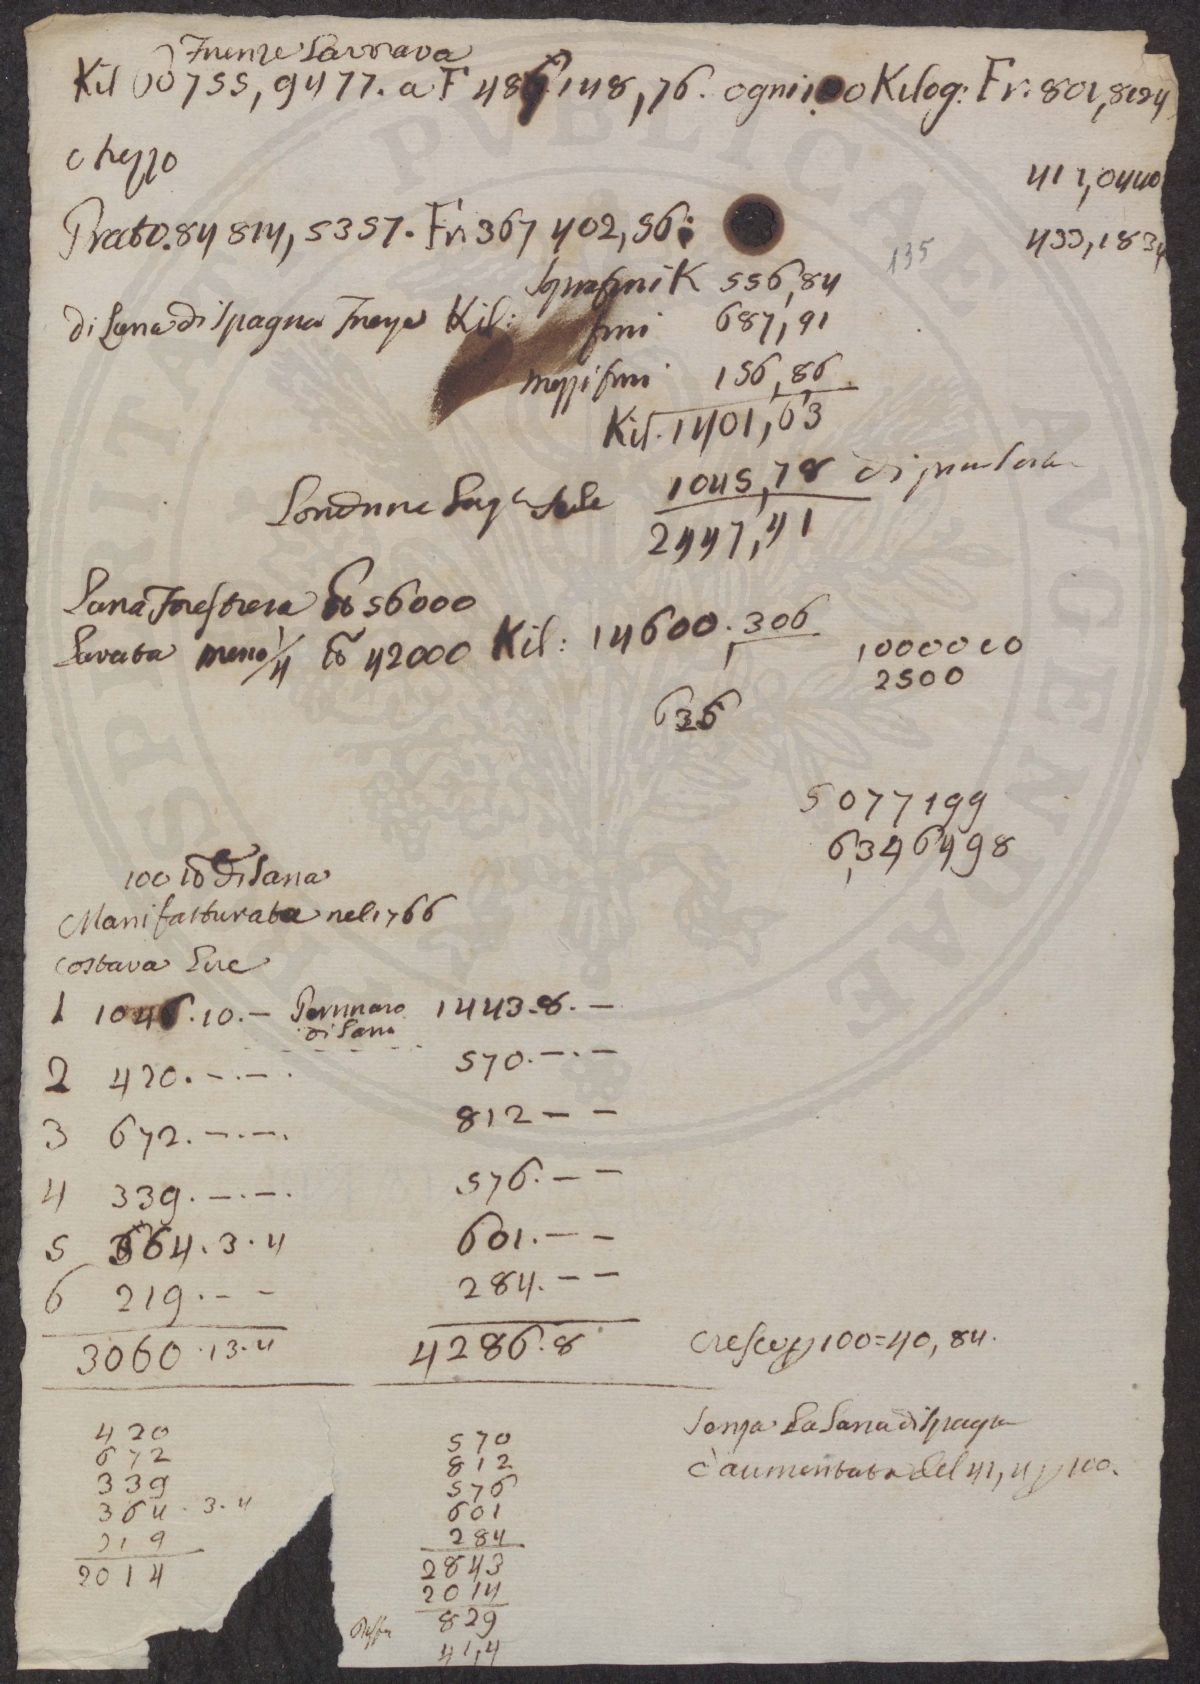 Firenze Lavorava
Kil 60755,9477. a F 486148,76. ogni 100 Kilog: Fr. 801,8124
e mezzo 411,0440
Prato. 84814,5357. Fr. 367402,56: 433,1834
135
Soprafini K 556,84
di Lana di Spagna Kil: fini 687,91
mezzi fini 156,86
Kil. 1401,63
Londrine 1045,78 di
2447,41
Lana Forestiera lb 56000
Lavata meno 1/4 lb 42000 Kil: 14600,306
1000000
2500
636
5077199
6,346498
100 lb di Lana
Manifatturata nel 1766
costava Lire
1 1046.10.— Pannnaro di Lana 1443.8.—
2 420.—.—. 570.—.—
3 672.—.—. 812——
4 339.—.—. 576.——
5 364.3.4 601.——
6 219.—— 284.——
3060.13.4 4286.8 cresce p 100=40,84.
Senza La Lana di Spagna
è aumentata del 41,4 p 100.
420
672
339
364.3.4
219
2014
570
812
576
601
284
2843
2014
829
41,4